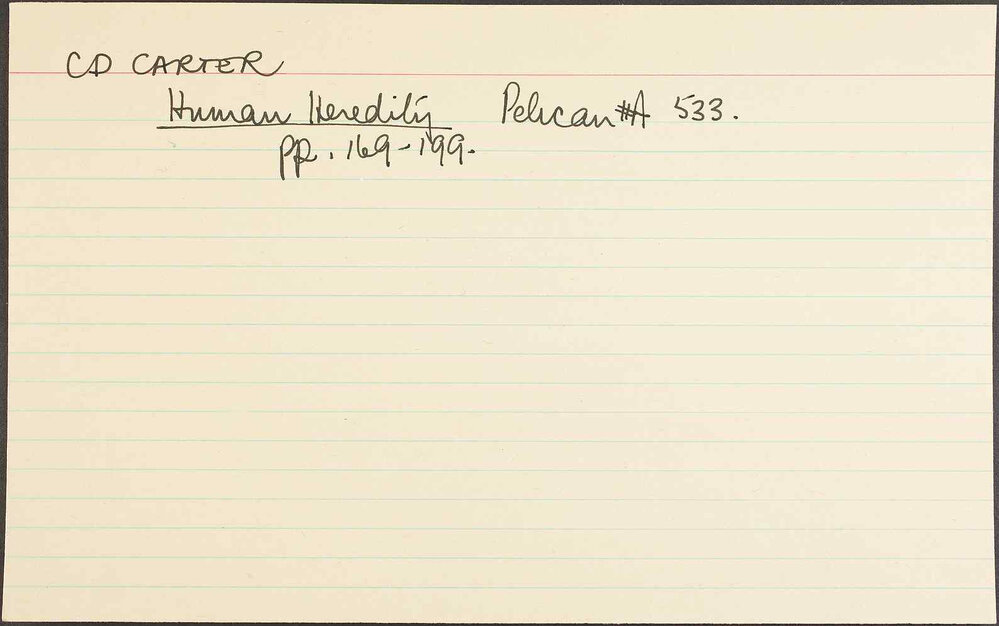 CD CARTER
Human Heredity Pelican #A 533.
pp. 169-199.